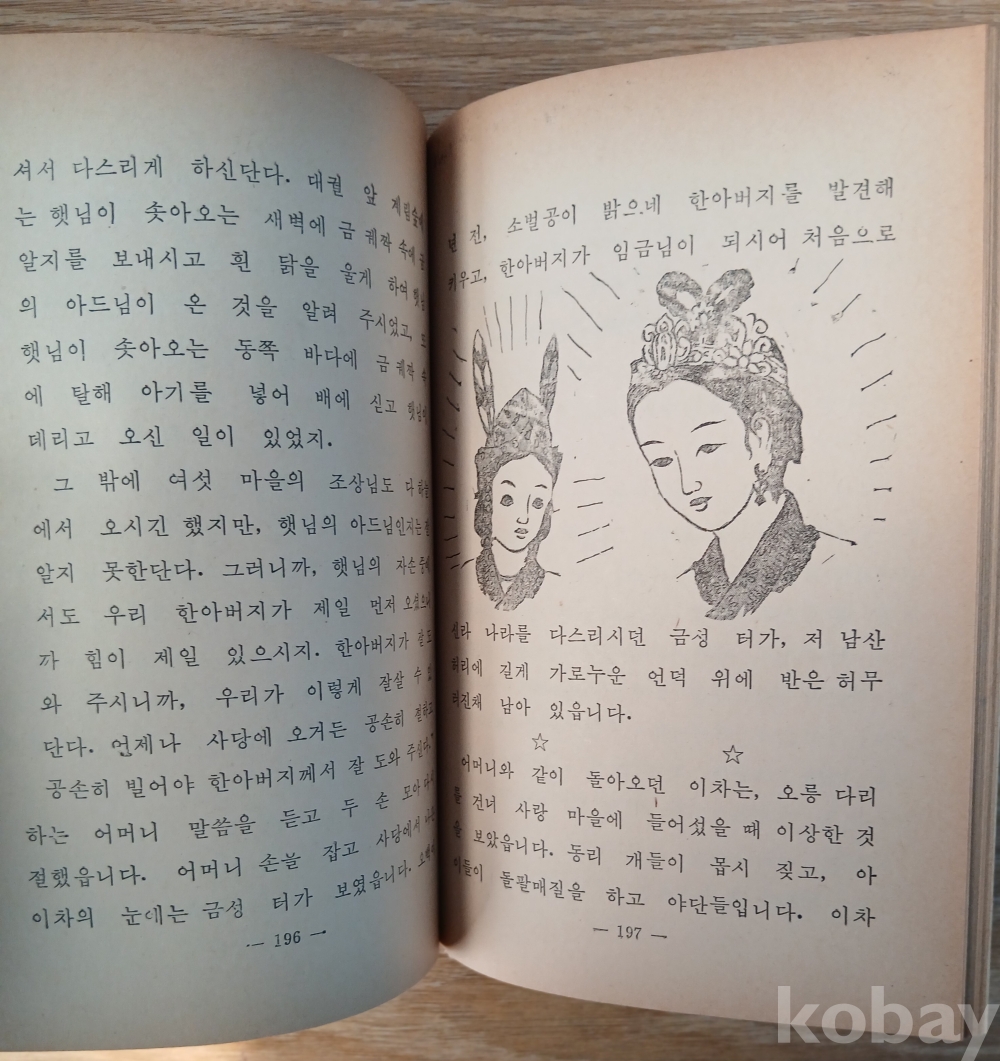 셔서 다스리게 하신단다. 대궐 앞 계림숲에
는 햇님이 솟아오는 새벽에 금 궤짝 속에
알지를 보내시고 흰 닭을 울게 하여 햇님
의 아드님이 온 것을 알려 주시었고, 또
햇님이 솟아오는 동쪽 바다에 금 궤짝 속
에 탈해 아기를 넣어 배에 싣고 햇님이
데리고 오신 일이 있었지.
그 밖에 여섯 마을의 조상님도 다 하늘
에서 오시긴 했지만, 햇님의 아드님인지는
알지 못한단다. 그러니까, 햇님의 자손 중에
서도 우리 한아버지가 제일 먼저 오셨으니
까 힘이 제일 있으시지. 한아버지가 잘 도
와 주시니까, 우리가 이렇게 잘살 수 있
단다. 언제나 사당에 오거든 공손히 절하고
공손히 빌어야 한아버지께서 잘 도와 주신다."
하는 어머니 말씀을 듣고 두 손 모아 다시
절했읍니다. 어머니 손을 잡고 사당에서 나온
이차의 눈에는 금성 터가 보였읍니다.
— 196 —
전, 소벌공이 밝으네 한아버지를 발견해
키우고, 한아버지가 임금님이 되시어 처음으로
신라 나라를 다스리시던 금성 터가, 저 남산
허리에 길게 가로누운 언덕 위에 반은 허무
러진채 남아 있읍니다.
☆ ☆
어머니와 같이 돌아오던 이차는, 오릉 다리
를 건너 사랑 마을에 들어섰을 때 이상한 것
을 보았읍니다. 동리 개들이 몹시 짖고, 아
이들이 돌팔매질을 하고 야단들입니다. 이차
— 197 —
kobay